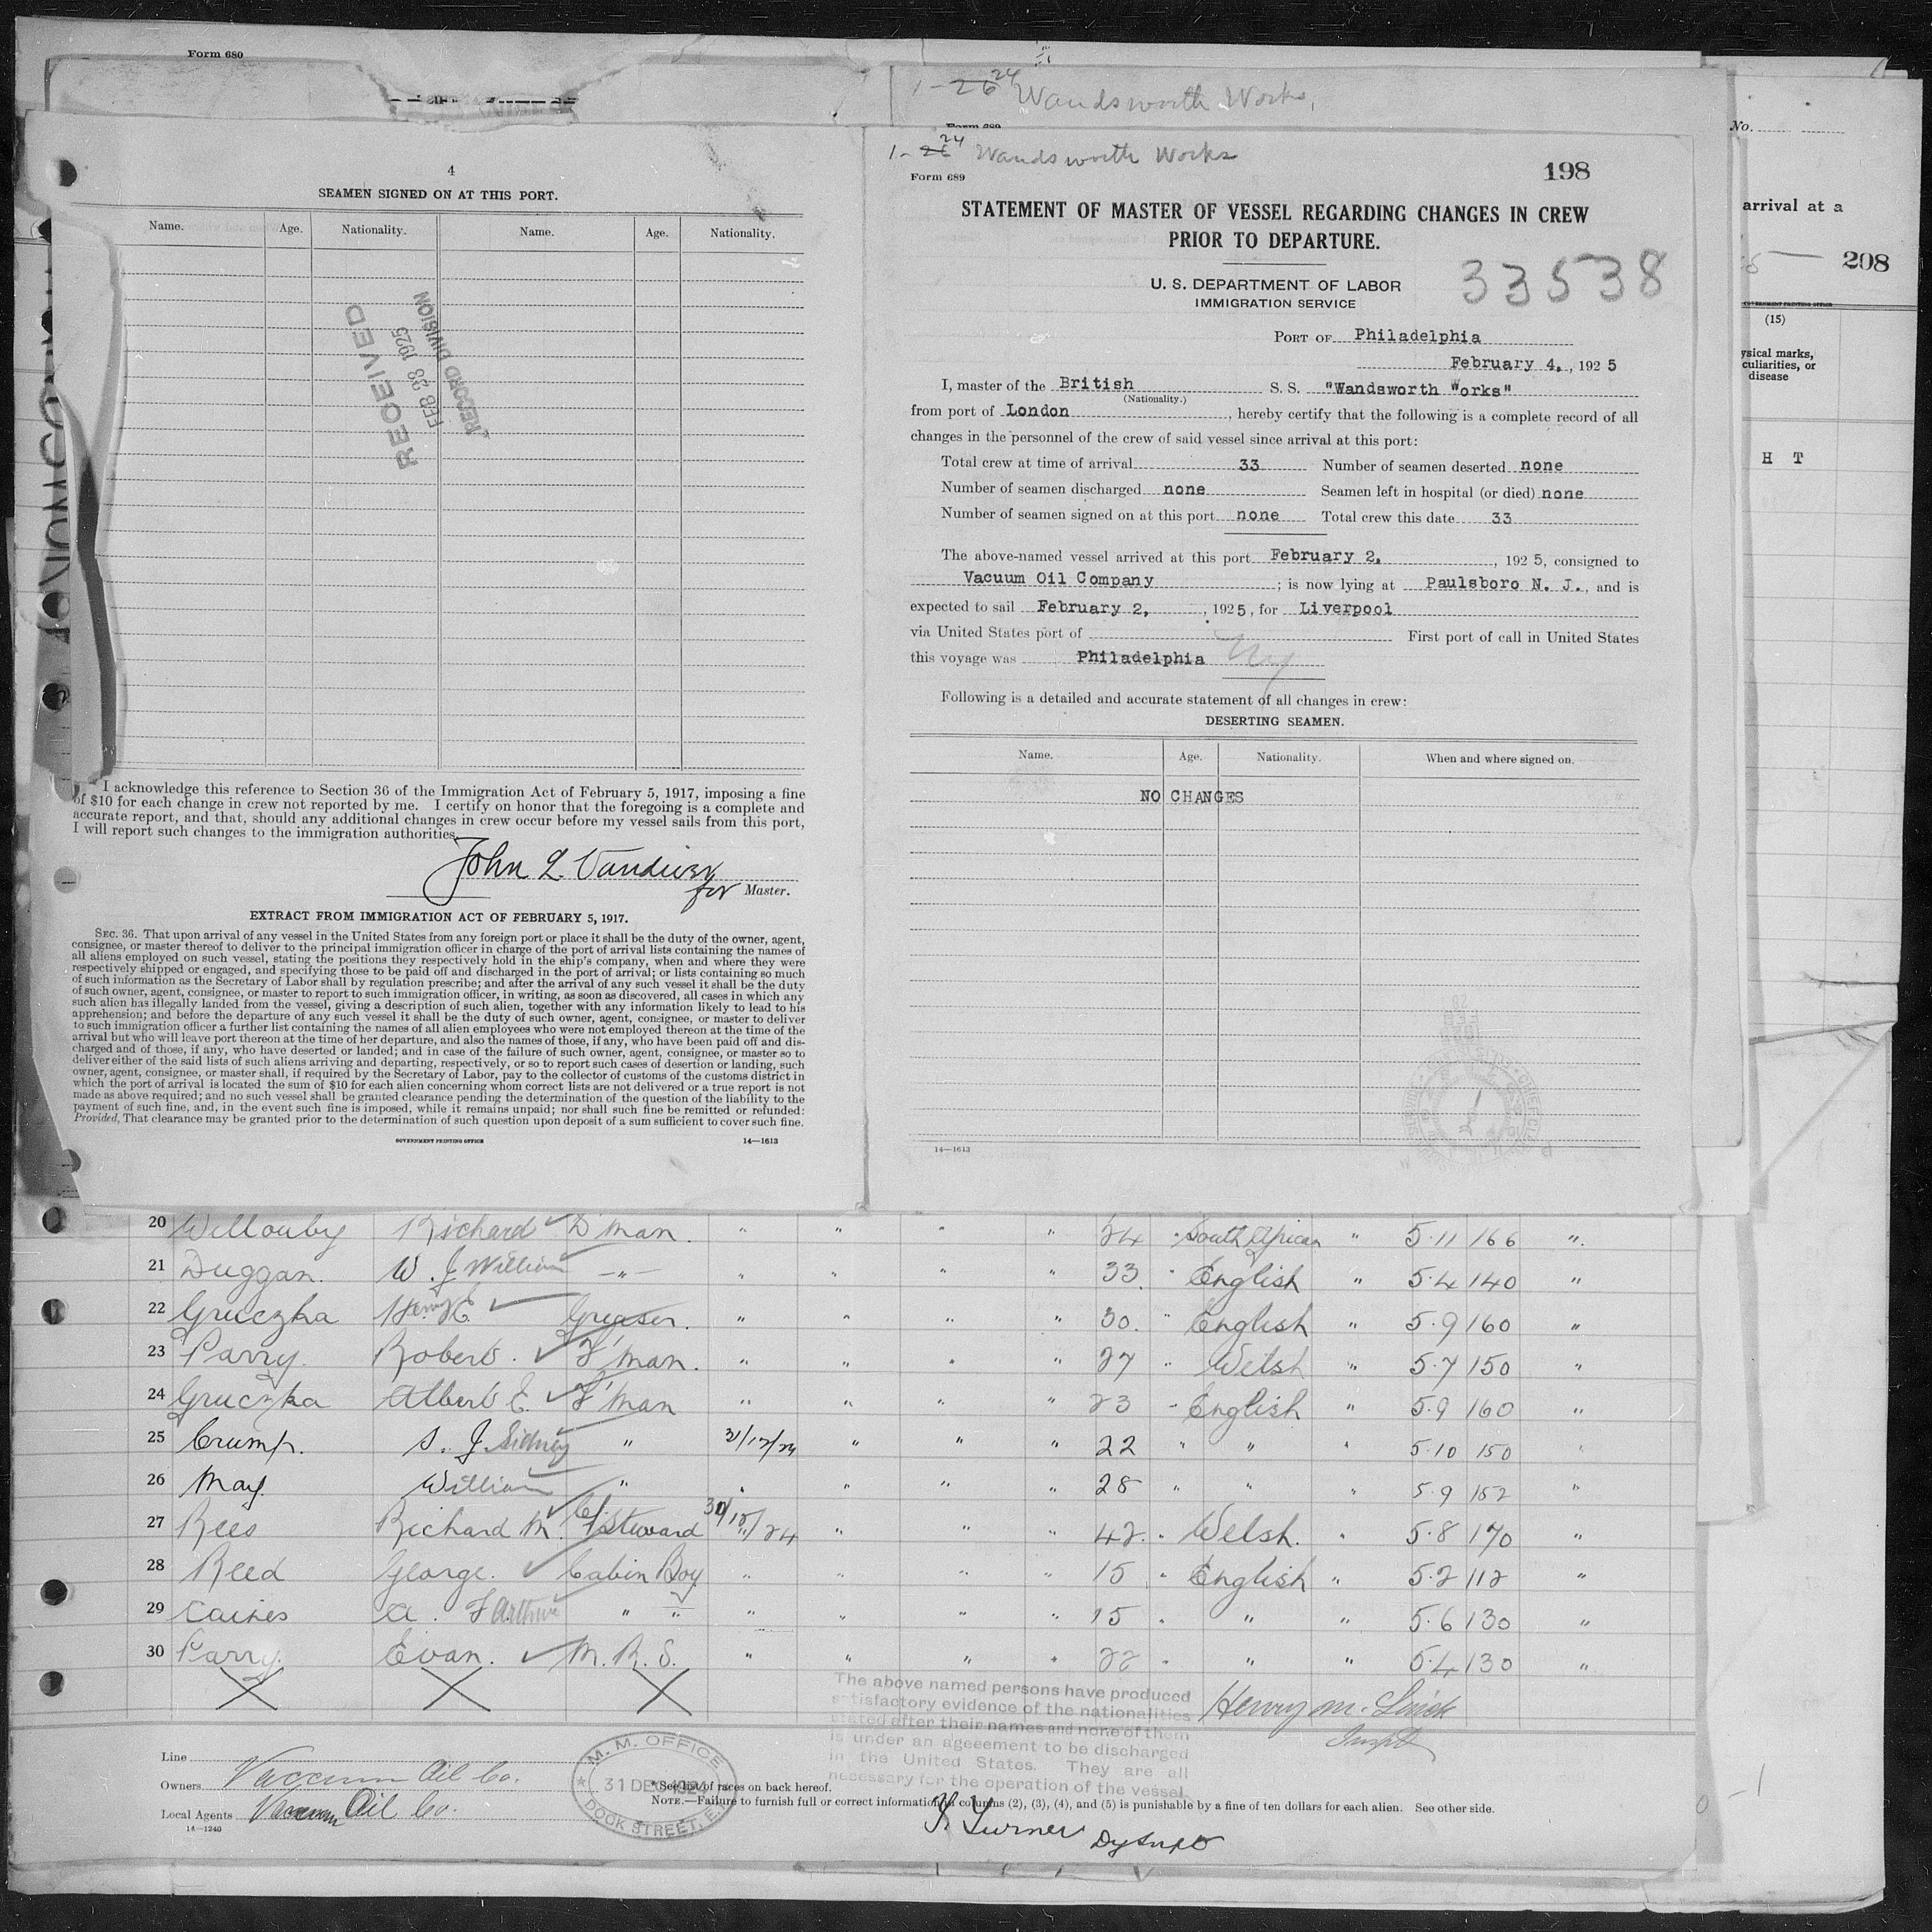 Form 680
1-26 24 Wandsworth Works,
Form 689
No.
arrival at a
208
GOVERNMENT PRINTING OFFICE
(15)
ysical marks,
culiarities, or
disease
H T
4
SEAMEN SIGNED ON AT THIS PORT.
Name. Age. Nationality. Name. Age. Nationality.
RECEIVED
FEB 28 1925
RECORD DIVISION
I acknowledge this reference to Section 36 of the Immigration Act of February 5, 1917, imposing a fine
of $10 for each change in crew not reported by me. I certify on honor that the foregoing is a complete and
accurate report, and that, should any additional changes in crew occur before my vessel sails from this port,
I will report such changes to the immigration authorities.
John L. Vandiver
for Master.
EXTRACT FROM IMMIGRATION ACT OF FEBRUARY 5, 1917.
SEC. 36. That upon arrival of any vessel in the United States from any foreign port or place it shall be the duty of the owner, agent,
consignee, or master thereof to deliver to the principal immigration officer in charge of the port of arrival lists containing the names of
all aliens employed on such vessel, stating the positions they respectively hold in the ship's company, when and where they were
respectively shipped or engaged, and specifying those to be paid off and discharged in the port of arrival; or lists containing so much
of such information as the Secretary of Labor shall by regulation prescribe; and after the arrival of any such vessel it shall be the duty
of such owner, agent, consignee, or master to report to such immigration officer, in writing, as soon as discovered, all cases in which any
such alien has illegally landed from the vessel, giving a description of such alien, together with any information likely to lead to his
apprehension; and before the departure of any such vessel it shall be the duty of such owner, agent, consignee, or master to deliver
to such immigration officer a further list containing the names of all alien employees who were not employed thereon at the time of the
arrival but who will leave port thereon at the time of her departure, and also the names of those, if any, who have been paid off and dis-
charged and of those, if any, who have deserted or landed; and in case of the failure of such owner, agent, consignee, or master so to
deliver either of the said lists of such aliens arriving and departing, respectively, or so to report such cases of desertion or landing, such
owner, agent, consignee, or master shall, if required by the Secretary of Labor, pay to the collector of customs of the customs district in
which the port of arrival is located the sum of $10 for each alien concerning whom correct lists are not delivered or a true report is not
made as above required; and no such vessel shall be granted clearance pending the determination of the question of the liability to the
payment of such fine, and, in the event such fine is imposed, while it remains unpaid; nor shall such fine be remitted or refunded:
Provided, That clearance may be granted prior to the determination of such question upon deposit of a sum sufficient to cover such fine.
GOVERNMENT PRINTING OFFICE 14—1613
1-26 24 Wandsworth Works
Form 689
198
STATEMENT OF MASTER OF VESSEL REGARDING CHANGES IN CREW
PRIOR TO DEPARTURE.
33538
U. S. DEPARTMENT OF LABOR
IMMIGRATION SERVICE
PORT OF Philadelphia
February 4, , 1925
I, master of the British S. S. "Wandsworth Works"
(Nationality.)
from port of London , hereby certify that the following is a complete record of all
changes in the personnel of the crew of said vessel since arrival at this port:
Total crew at time of arrival 33 Number of seamen deserted none
Number of seamen discharged none Seamen left in hospital (or died) none
Number of seamen signed on at this port none Total crew this date 33
The above-named vessel arrived at this port February 2, , 1925, consigned to
Vacuum Oil Company ; is now lying at Paulsboro N. J., and is
expected to sail February 2, , 1925, for Liverpool
via United States port of First port of call in United States
this voyage was Philadelphia
Following is a detailed and accurate statement of all changes in crew:
DESERTING SEAMEN.
Name. Age. Nationality. When and where signed on.
NO CHANGES
14—1613
20 Willouby Richard D'man. " " " " 24 " South African " 5·11 166 "
21 Duggan. W. J William -"- " " " " 33 " English " 5·4 140 "
22 Gruczka Henry E Greaser. " " " " 30. " English " 5·9 160 "
23 Parry. Robert. F'man. " " " " 27 " Welsh " 5·7 150 "
24 Gruczka Albert E. F'man " " " " 23 " English " 5·9 160 "
25 Crump. S. J. Sidney " 31/12/24 " " " 22 " " " 5·10 150 "
26 May. William " " " " " 28 " " " 5·9 152 "
27 Rees Richard M. Ch Steward 30/12/24 " " " 42 " Welsh. " 5·8 170 "
28 Reed George. Cabin Boy " " " " 15 " English " 5·2 112 "
29 Caines A. F Arthur " " " " " " 15 " " " 5·6 130 "
30 Parry. Evan. M. R. S. " " " " 22 " " " 5·4 130 "
The above named persons have produced
satisfactory evidence of the nationalities
stated after their names and none of them
is under an ageeement to be discharged
in the United States. They are all
necessary for the operation of the vessel.
Line
Owners Vaccum Oil Co.
Local Agents Vacuum Oil Co.
14—1240
M. M. OFFICE
31 DEC 1924
DOCK STREET, E.
* See list of races on back hereof.
NOTE.—Failure to furnish full or correct information in columns (2), (3), (4), and (5) is punishable by a fine of ten dollars for each alien. See other side.
Turner Dy Supt